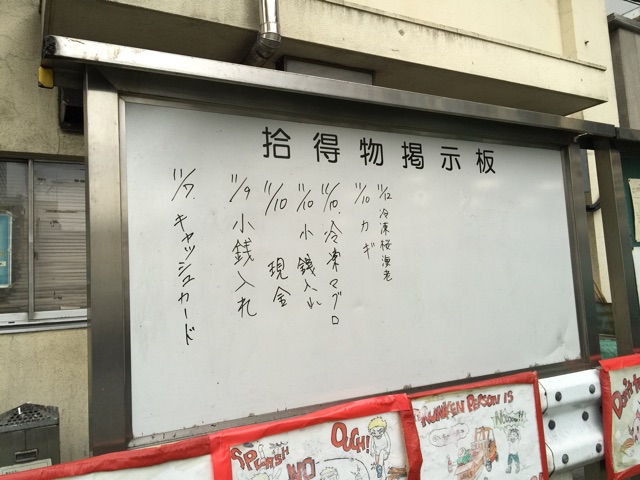 拾得物掲示板
11/7. キャッシュカード
11/9 小銭入れ
11/10 現金
11/10 小銭入れ
11/10. 冷凍マグロ
11/10 カギ
11/12 冷凍桜海老
SPLASH!
NO
OUCH!!
DRUNKEN PERSON IS
Don't